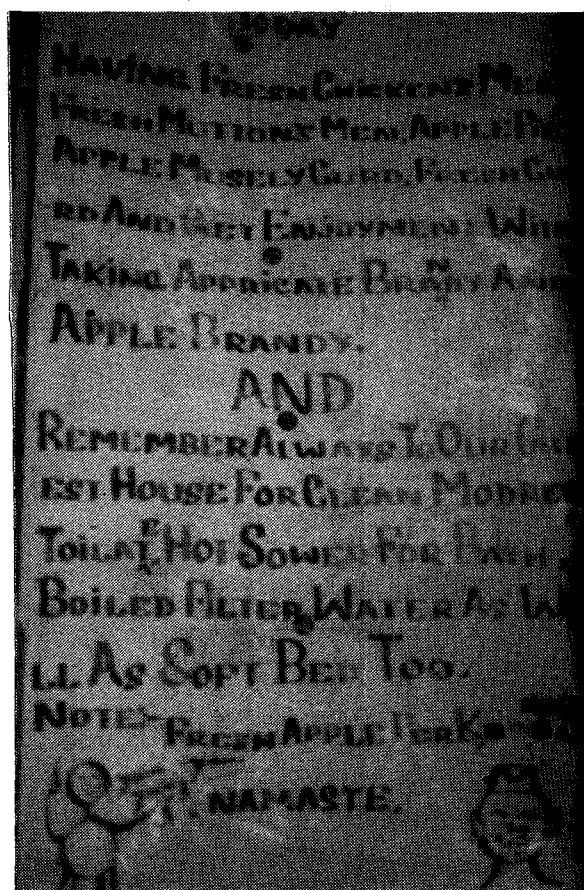 TODAY
HAVING FRESH CHICKEN'S
FRESH MUTTON'S MOM, APPLE
APPLE MUSELY CURD, FRESH CU
-RD AND GET ENJOYMENT WITH
TAKING APPRICATE BRANDY AND
APPLE BRANDY.
AND
REMEMBER ALWAYS TO OUR GU
EST HOUSE FOR CLEAN MODREN
TOILATE HOT SOWER FOR BATH
BOILED FILTER WATER AS WE
LL AS SOFT BED TOO.
NOTE:- FRESH APPLE PER K.
NAMASTE.